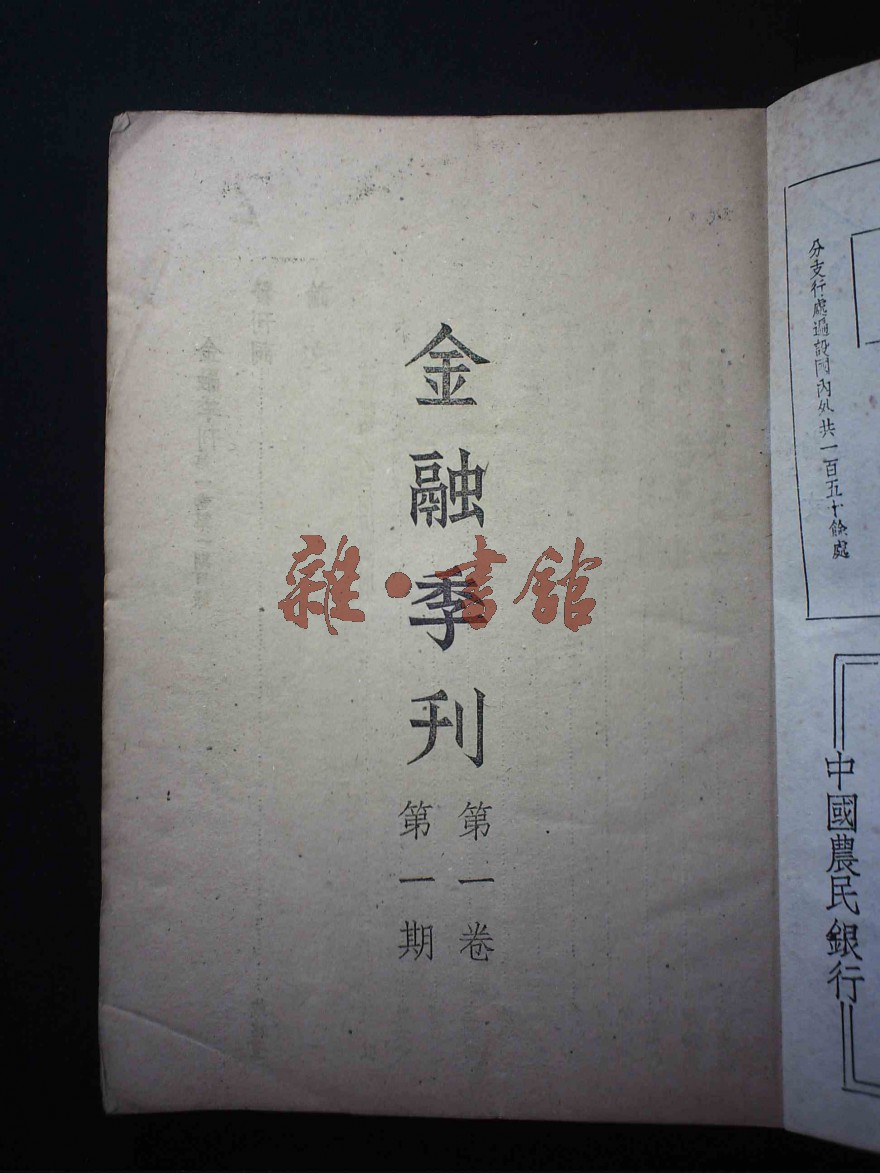 金融季刊
第一卷
第一期
雜·書館
分支行處遍設國內外共一百五十餘處
中國農民銀行